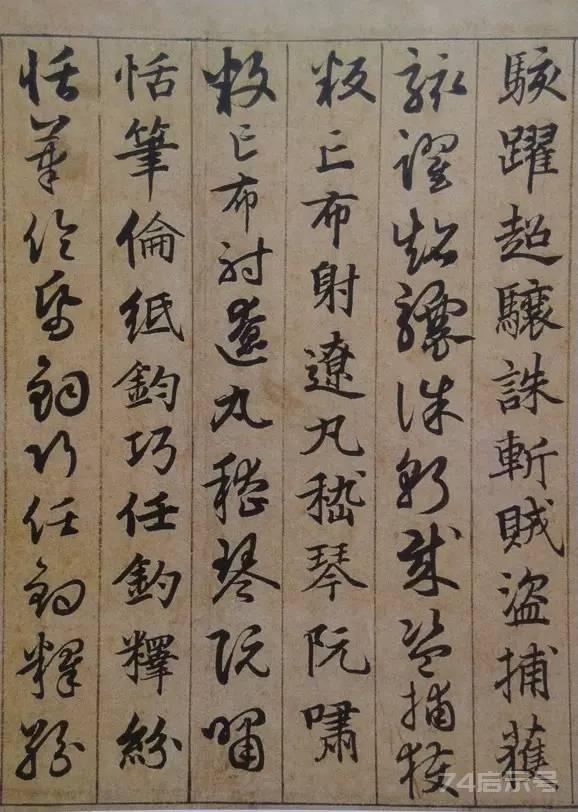 駭躍超驤誅斬賊盜捕獲
駭躍超驤誅斬賊盜捕獲
叛亡布射遼丸嵇琴阮嘯
叛亡布射遼丸嵇琴阮嘯
恬筆倫紙鈞巧任釣釋紛
恬筆倫紙鈞巧任釣釋紛
74启示号